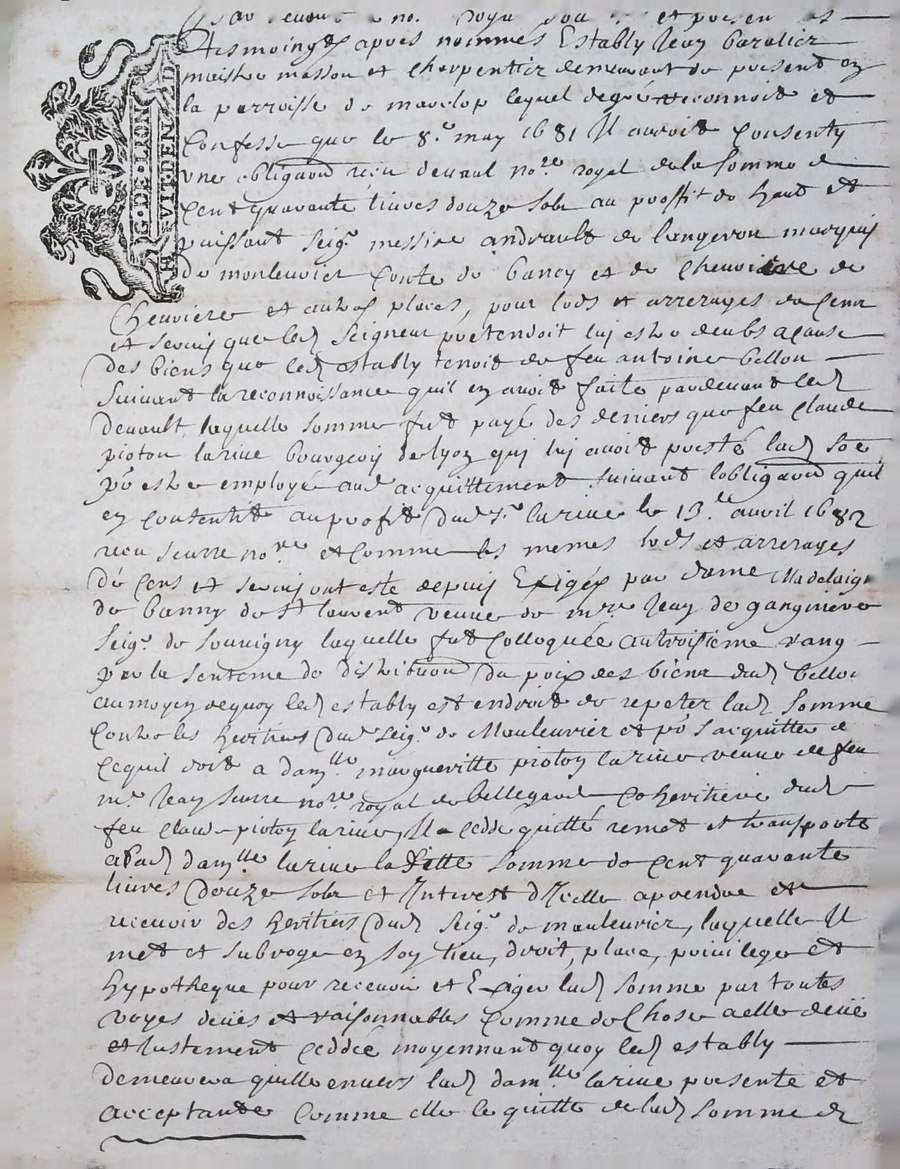 royal et presen
tesmoings apres nommes Estably Jean Baralier
maistre masson et charpentier demeurant de present en
la parroisse de marclop lequel de gré reconnoit et
confesse que le 8e. may 1681 Il auroit consenty
vne obligaōn receu deuaul nore. royal de la somme de
cent quarante liures douze sols au proffit de haut et
puissant seigr. messire andrault de langeron marquis
de monleurier conte de bancy et de cheuriere de
cheuriere et autres places, pour lods et arrerages de cens
et seruis que led. Seigneur pretendoit lui estre deubs a cause
des biens que led. estably tenoit de feu antoine bellon
suiuant la reconnoissance quil en auoit faite pardeuant led.
deuault, laquelle somme fut payé des deniers que feu claude
pioton lariue bourgeois de lyon qui lui auoit presté lad. sōe
pr. estre employée aud. acquittement suiuant lobligaōn quil
en consentit au profit dud. sr. lariue le 13e. auril 1682
receu seurre nore. et comme les memes lods et arrerages
de cens et seruis ont esté depuis Exigés par dame Madelaine
de banny de st laurent veuue de mre. Jean de gangnieres
seigr. de souuigny laquelle fut colloquée au troisieme rang
par la sentence de distribuōn du prix des biens dud. bellon
au moyen de quoy led. estably est en droit de repeter lad. somme
contre les heritiers dud. seigr. de Mauleurier et pr. s'acquitter de
ce quil doit a damlle. margueritte pioton lariue veuue de feu
mr. Jean seurre nore. royal de bellegarde coheritiere dud.
feu claude pioton lariue, Il a cedde quitté remet et transporte
a lad. damlle. lariue la ditte somme de cent quarante
liures douze sols et Interest d'Icelle a prendre et
receuoir des heritiers dud. seigr. de mauleurier, laquelle Il
met et subroge en son lieu, droit, place, priuilege et
hypotheque pour receuoir et Exiger lad. somme par toutes
voyes deües et raisonnables comme de chose a elle deüe
et Justement ceddée moyennant quoy led. estably
demeurera quitte enuers lad. damlle. lariue presente et
acceptante comme elle le quitte de lad. somme de
G. DE LION
ET VIT DEN D